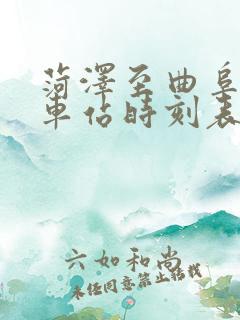 菏澤至曲阜
車佔時刻表
六如和尚
未经同意禁止搭载